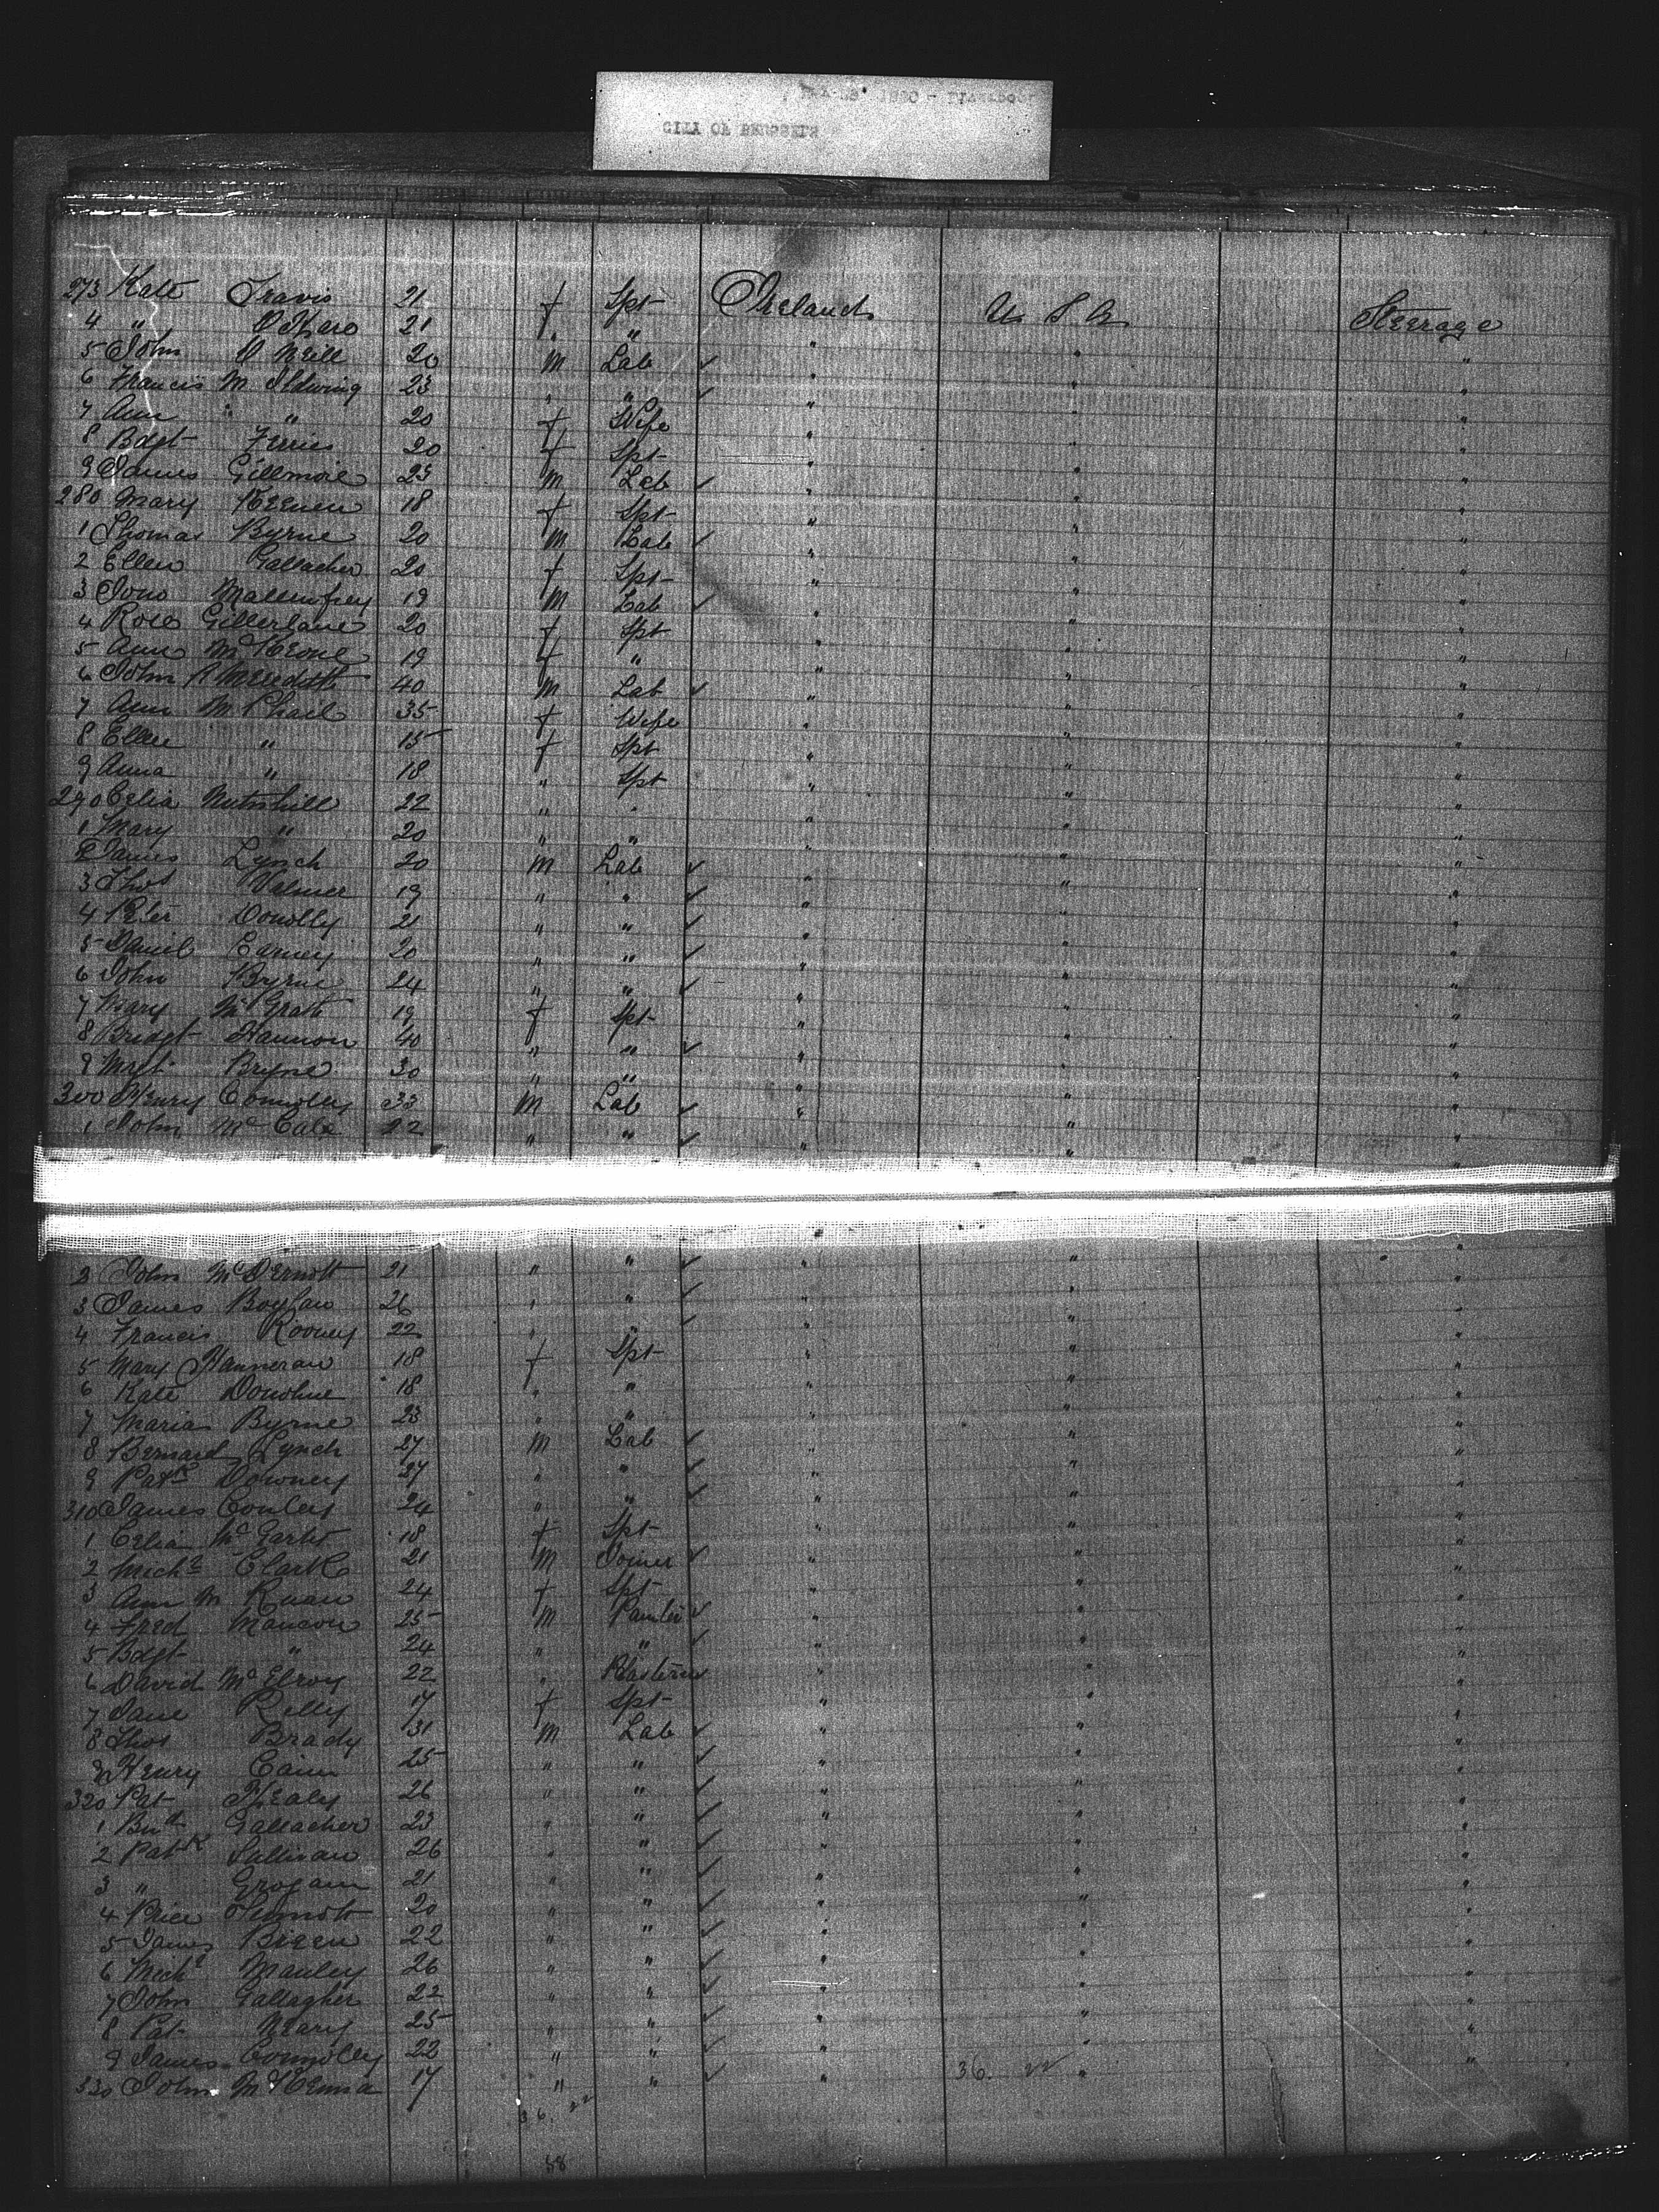 CITY OF BRUSSELS
273 Kate Travis 21 f Spt Ireland U S A Steerage
4 " O'Haro 21 f " " " "
5 John O Neill 20 m Lab ✓ " " "
6 Francis M 23 " " ✓ " " "
7 Ann " " 20 f Wife " " "
8 Bdgt 20 f Spt " " "
9 James Gillmore 23 m Lab ✓ " " "
280 Mary 18 f Spt " " "
1 Thomas Byrne 20 m Lab ✓ " " "
2 Ellen Gallacher 20 f Spt " " "
3 19 m Lab ✓ " " "
4 Rose Gillerlane 20 f Spt " " "
5 Ann McKeone 19 f " " " "
6 John A Meredith 40 m Lab ✓ " " "
7 Ann M Phail 35 f Wife " " "
8 Ellen " 15 f Spt " " "
9 Anna " 18 " Spt " " "
290 Celia 22 " " " " "
1 Mary " 20 " " " " "
2 James Lynch 20 m Lab ✓ " " "
3 Thos 19 " " ✓ " " "
4 Peter Donolly 21 " " ✓ " " "
5 Daniel Earney 20 " " ✓ " " "
6 John Byrne 24 " " ✓ " " "
7 Mary McGrath 19 f Spt " " "
8 Bridgt Hannon 40 " " ✓ " " "
9 Mrgt Bryne 30 " " " " "
300 Henry Connolly 33 m Lab ✓ " " "
1 John McCabe 22 " " ✓ " " "
2 John McDermott 21 " " ✓ " " "
3 James Boylan 26 " " ✓ " " "
4 Francis Rooney 22 " " ✓ " " "
5 Mary Hanneran 18 f Spt " " "
6 Kate Donohue 18 " " " " "
7 Maria Byrne 23 " " " " "
8 Bernard Lynch 27 m Lab ✓ " " "
9 Patk Downey 27 " " ✓ " " "
310 James Conley 24 " " ✓ " " "
1 Celia 18 f Spt " " "
2 Michl Clarke 21 m Joiner ✓ " " "
3 Ann M Ruan 24 f Spt " " "
4 Fred 25 m Painter ✓ " " "
5 Bdgt " 24 " " ✓ " " "
6 David McElroy 22 " Plasterer ✓ " " "
7 Jane Relly 17 f Spt " " "
8 Thos Brady 31 m Lab ✓ " " "
9 Henry Cain 25 " " ✓ " " "
320 Pat Healy 26 " " ✓ " " "
1 Gallacher 23 " " ✓ " " "
2 Patk Sullivan 26 " " ✓ " " "
3 " Grogann 21 " " ✓ " " "
4 20 " " ✓ " " "
5 James Breen 22 " " ✓ " " "
6 Michl Manley 26 " " ✓ " " "
7 John Gallagher 22 " " ✓ " " "
8 Pat Neary 25 " " ✓ " " "
9 James Connolly 22 " " ✓ " " "
330 John McKenna 17 " " ✓ " 36. 22 " "
36. 22
58